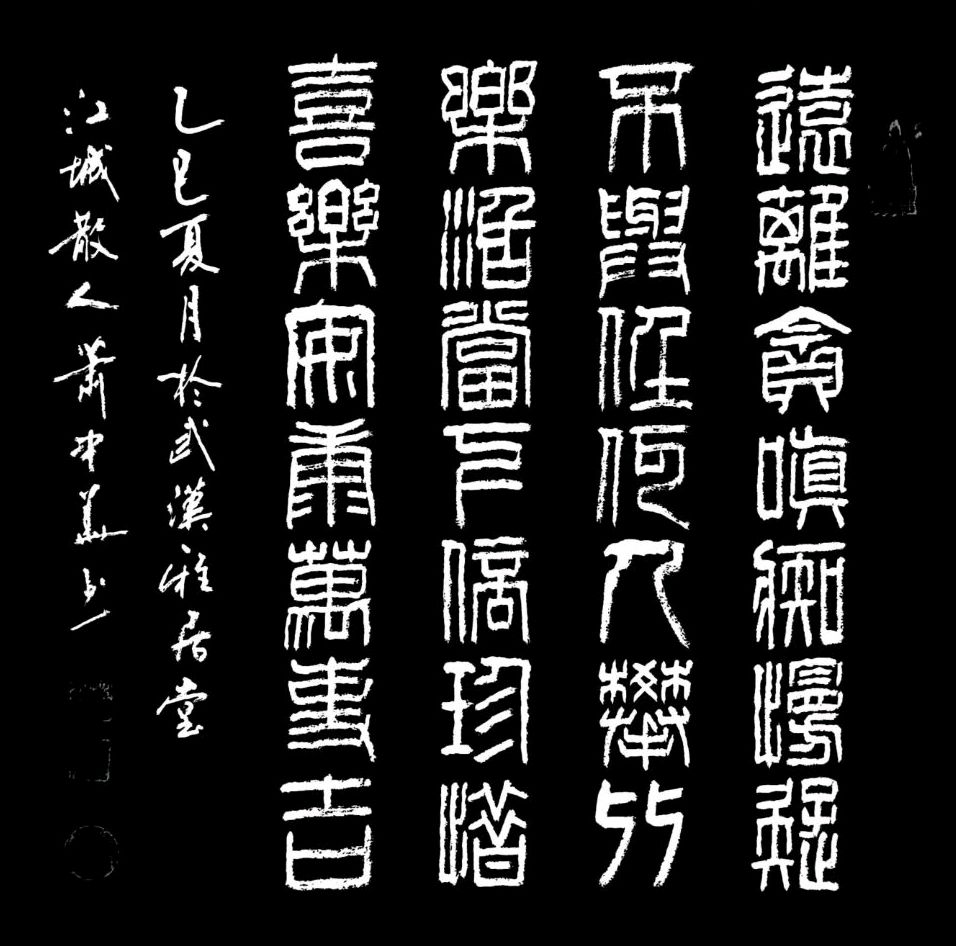 遠離貪嗔痴慢疑
不與任何人攀比
樂活當下倍珍惜
喜樂安康萬事吉
乙巳夏月於武漢雅居堂
江城散人蕭